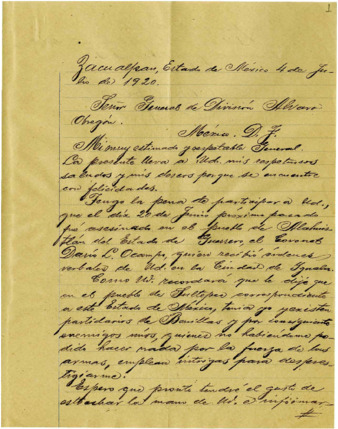 1
Zacualpan, Estado de México 4 de Ju-
lio de 1920.
Señor General de División Alvaro
Obregón.
México. D. F.
Mi muy estimado y respetable General.
La presente lleva a Ud. mis respetuosos
saludos y mis deseos porque se encuentre
con felicidades.
Tengo la pena de participar a Ud.,
que el día 22 de Junio próximo pasado
fué asesinado en el pueblo de
del Estado de Guerrero, el Coronel
Darío L. Ocampo, quien recibió órdenes
verbales de Ud. en la Ciudad de Iguala.
Como Ud. recordará que le dije que
en el pueblo de Sultepec correspondiente
a este Estado de México, tenía yo
partidarios de y por consiguiente
enemigos míos, quienes no habiendome po-
dido hacer nada por la fuerza de las
armas, emplean intrigas para despres-
tigiarme.
Espero que pronto tendré el gusto de
estrechar la mano de Ud. e informar-